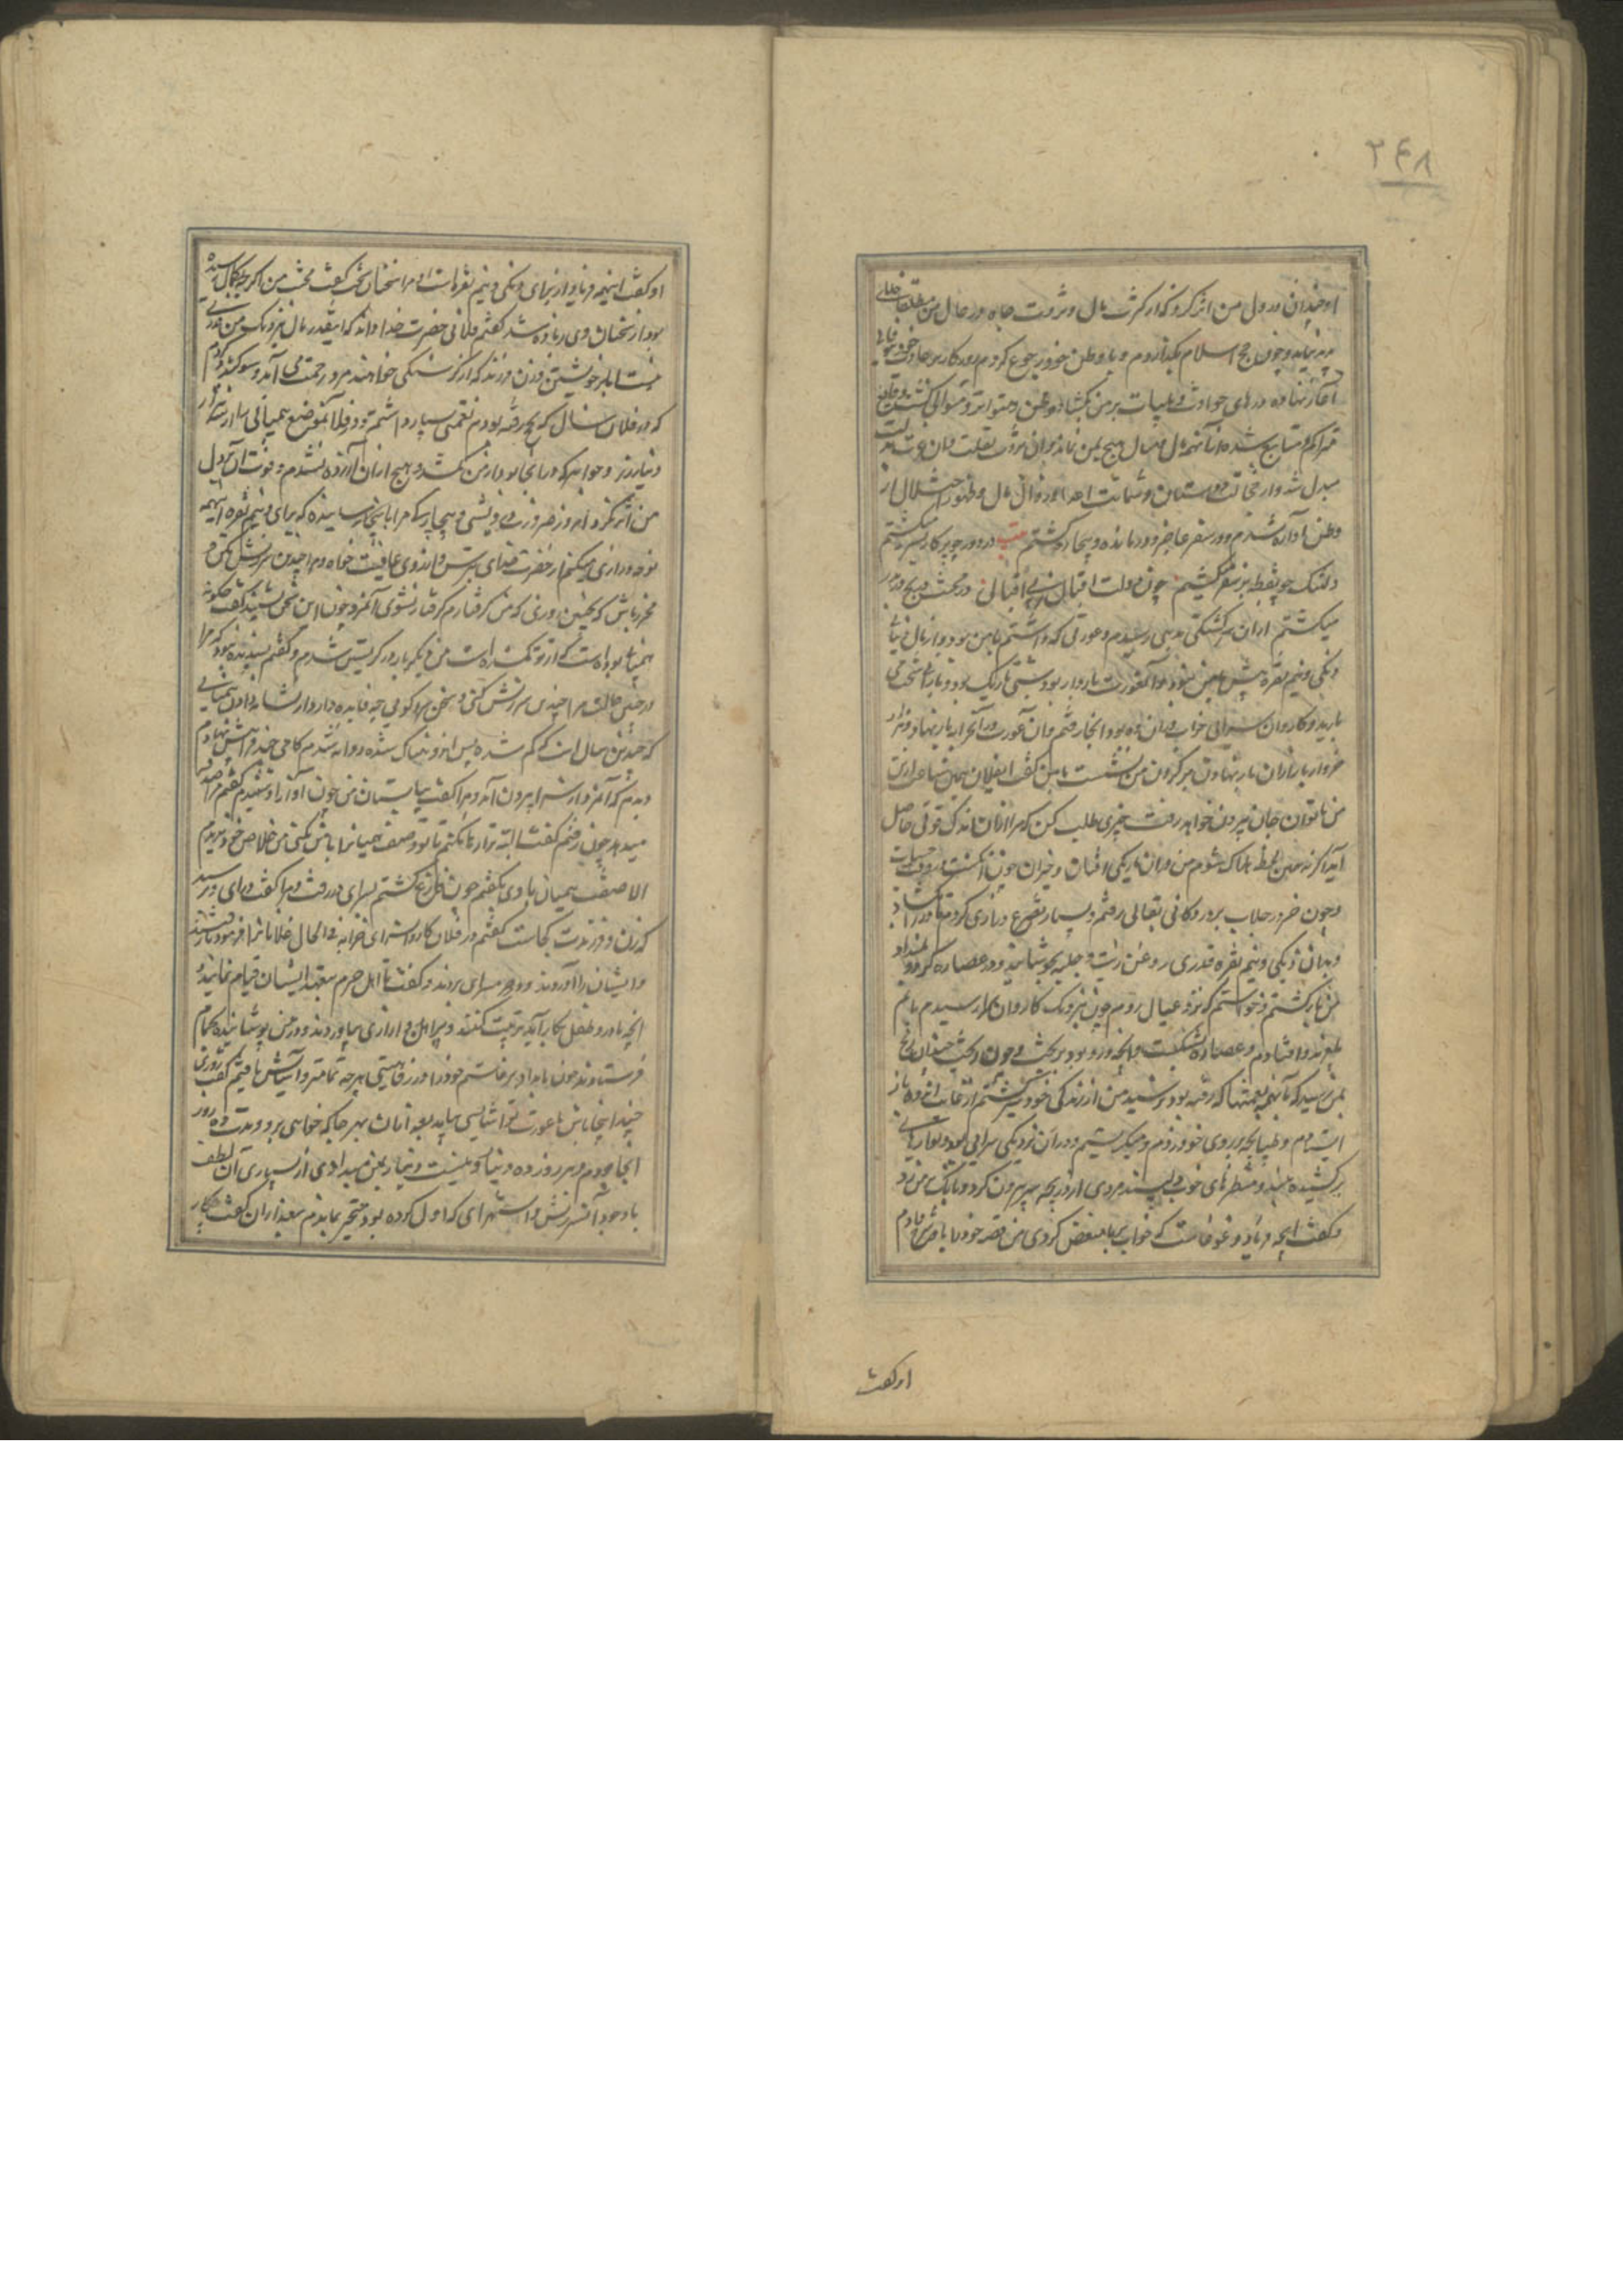 ۲۴۸
او چندان در دل من اثر نکرد که از کثرت مال و ثروت جاه در حال من خللی
پدید نیاید و چون حج اسلام بگذاردم و با وطن خود رجوع کردم روزگار بر عادت خود
آغاز نهاد و درهای حوادث و بلیات بر من بکشاد و محن متواتر و متوالی گشت
متراکم و متتابع شد و از آنهمه مال و منال هیچ بمن نماند و آن ثروت بقلت و آن عزت بذلت
مبدل شد و از خجالت دوستان و شماتت اعدا و زوال مال و ظهور اختلال از
وطن آواره شدم و در سفر عاجز و درمانده و بیچاره گشتم بیت در دور چو پرگار بسر میگشتم
دلتنک چو نقطه در سفر میگشتم چون دولت اقبال ز بی اقبالی در محنت هیچ در بدر
میگشتم از ان سرگشتگی بدهی رسیدم و عورتی که داشتم با من بود و از مال دنیا
دنکی و نیم نقره بیش با من نبود و آن عورت باردار بود و شبی تاریک بود و باران سخت می
بارید و کاروان سرائی خراب در ان ده بود آنجا رفتم و آن عورت در آنجا بار بنهاد و
بعد از بار نهادن من نشست با من گفت ایفلان همین ساعت از تن
من ناتوان جان بیرون خواهد رفت چیزی طلب کن که مرا از ان اندک قوتی حاصل
آید اگر نه همین لحظه هلاک شوم من در ان تاریکی افتان و خیزان
و چون ضرورت بدر دکانی بقالی رفتم و بسیار تضرع و زاری کردم تا در بگشاد
و بدان دنکی و نیم نقره قدری روغن زیت و حلبه بجوشانید و در عصاره کرد و بمن داد
من بازگشتم و خواستم که نزد عیال روم چون نزدیک کاروانسرا رسیدم پایم
بلغزید و افتادم و عصاره بشکست و آنچه در و بود بریخت و چندان رنج
بمن رسید که با آنهمه نعمتها که رفته بود نرسید من از زندگی خود سیر گشتم از غایت اندوه باز
ایستادم و طپانچه بر روی خود زدم و میگریستم و در ان نزدیکی سرائی بود و دیوارهای
برکشیده بلند و منظرهای خوب و دلپسند مردی از دریچه سر بیرون کرد و بانک بر من زد
و گفت اینچه فریاد و غوغاست که خواب بر ما منغص کردی من قصه خود را با او شرح دادم
او گفت
او گفت اینهمه فریاد از برای دنکی و نیم نقره است و مرا سخنان سخت گفت محنت من اگرچه بکمال رسیده
بود از سخنان وی زیاده شد گفتم فلانی حضرت خدا داند که اینقدر مال نزدیک من قدری
نیست اما بر خویشتن و زن و فرزند که از گرسنگی خواهند مرد رحمت می آید و سوگند خوردم
که در فلان سال که بحج رفته بودم نعمتی بسیار داشتم و در فلان موضع همیانی
دینار زر و جواهر که در انجا بود از من گم شد و هیچ از ان آزرده نشدم و فوت آن در دل
من اثر نکرد امروز ضرورت درویشی و بیچارگی مرا باینجا رسانیده که برای دنکی و نیم نقره اینهمه
نوحه و زاری میکنم از حضرت خدای بترس و از وی عافیت خواه و مرا چندین سرزنش مکن و
محترز باش که بچنین روزی که من گرفتارم گرفتار نشوی آنمرد چون این سخن بشنید گفت چگونه
همیانی بوده است که از تو گم شده است من دیگر بار در گریستن شدم و گفتم پسندیده نبود که مرا
در چنین حالت مرا چندین سرزنش کنی و سخن سرد گویی چه فایده دارد از نشانه دادن همیانی
که چندین سال است که گم شده پس اندوهناک شده روانه شدم گامی چند در پیش نهادم
دیدم که آنمرد از سرا بیرون آمد و مرا گفت بیا بستان من چون آواز او شنیدم گفتم مرا صدقه
میدهد چون رفتم گفت البته ترا رها نکنم تا تو وصف همیان را با من نکنی من خلاص خود ندیدم
الا صفت همیان با وی بگفتم چون فارغ گشتم بسرای در رفت و مرا گفت درای و پرسید
که زن و فرزندت کجاست گفتم در فلان کاروانسرای خرابه فی الحال غلامانرا فرمود تا برفتند
و ایشان را آوردند و در سرای بردند و گفت تا اهل حرم بتعهد ایشان قیام نمایند و
آنچه مادر و طفل بکار آید ترتیب کنند و پیراهن و ازاری بیاوردند و در من پوشانیده بحمام
فرستادند چون بامداد برخاستم خود را در رفاهیتی هرچه تمامتر و آسایش یافتم گفت روزی
چند اینجا باش تا عورت ترا آسایشی بیاید بعد از ان بهر جا که خواهی برو و مدت ده روز
آنجا بودم و هر روز ده دینار و بیست دینار بمن میدادی از بسیاری آن لطف
با وجود آن سرزنش و استهزای که اول کرده بود متحیر بماندم بعد از ان گفت